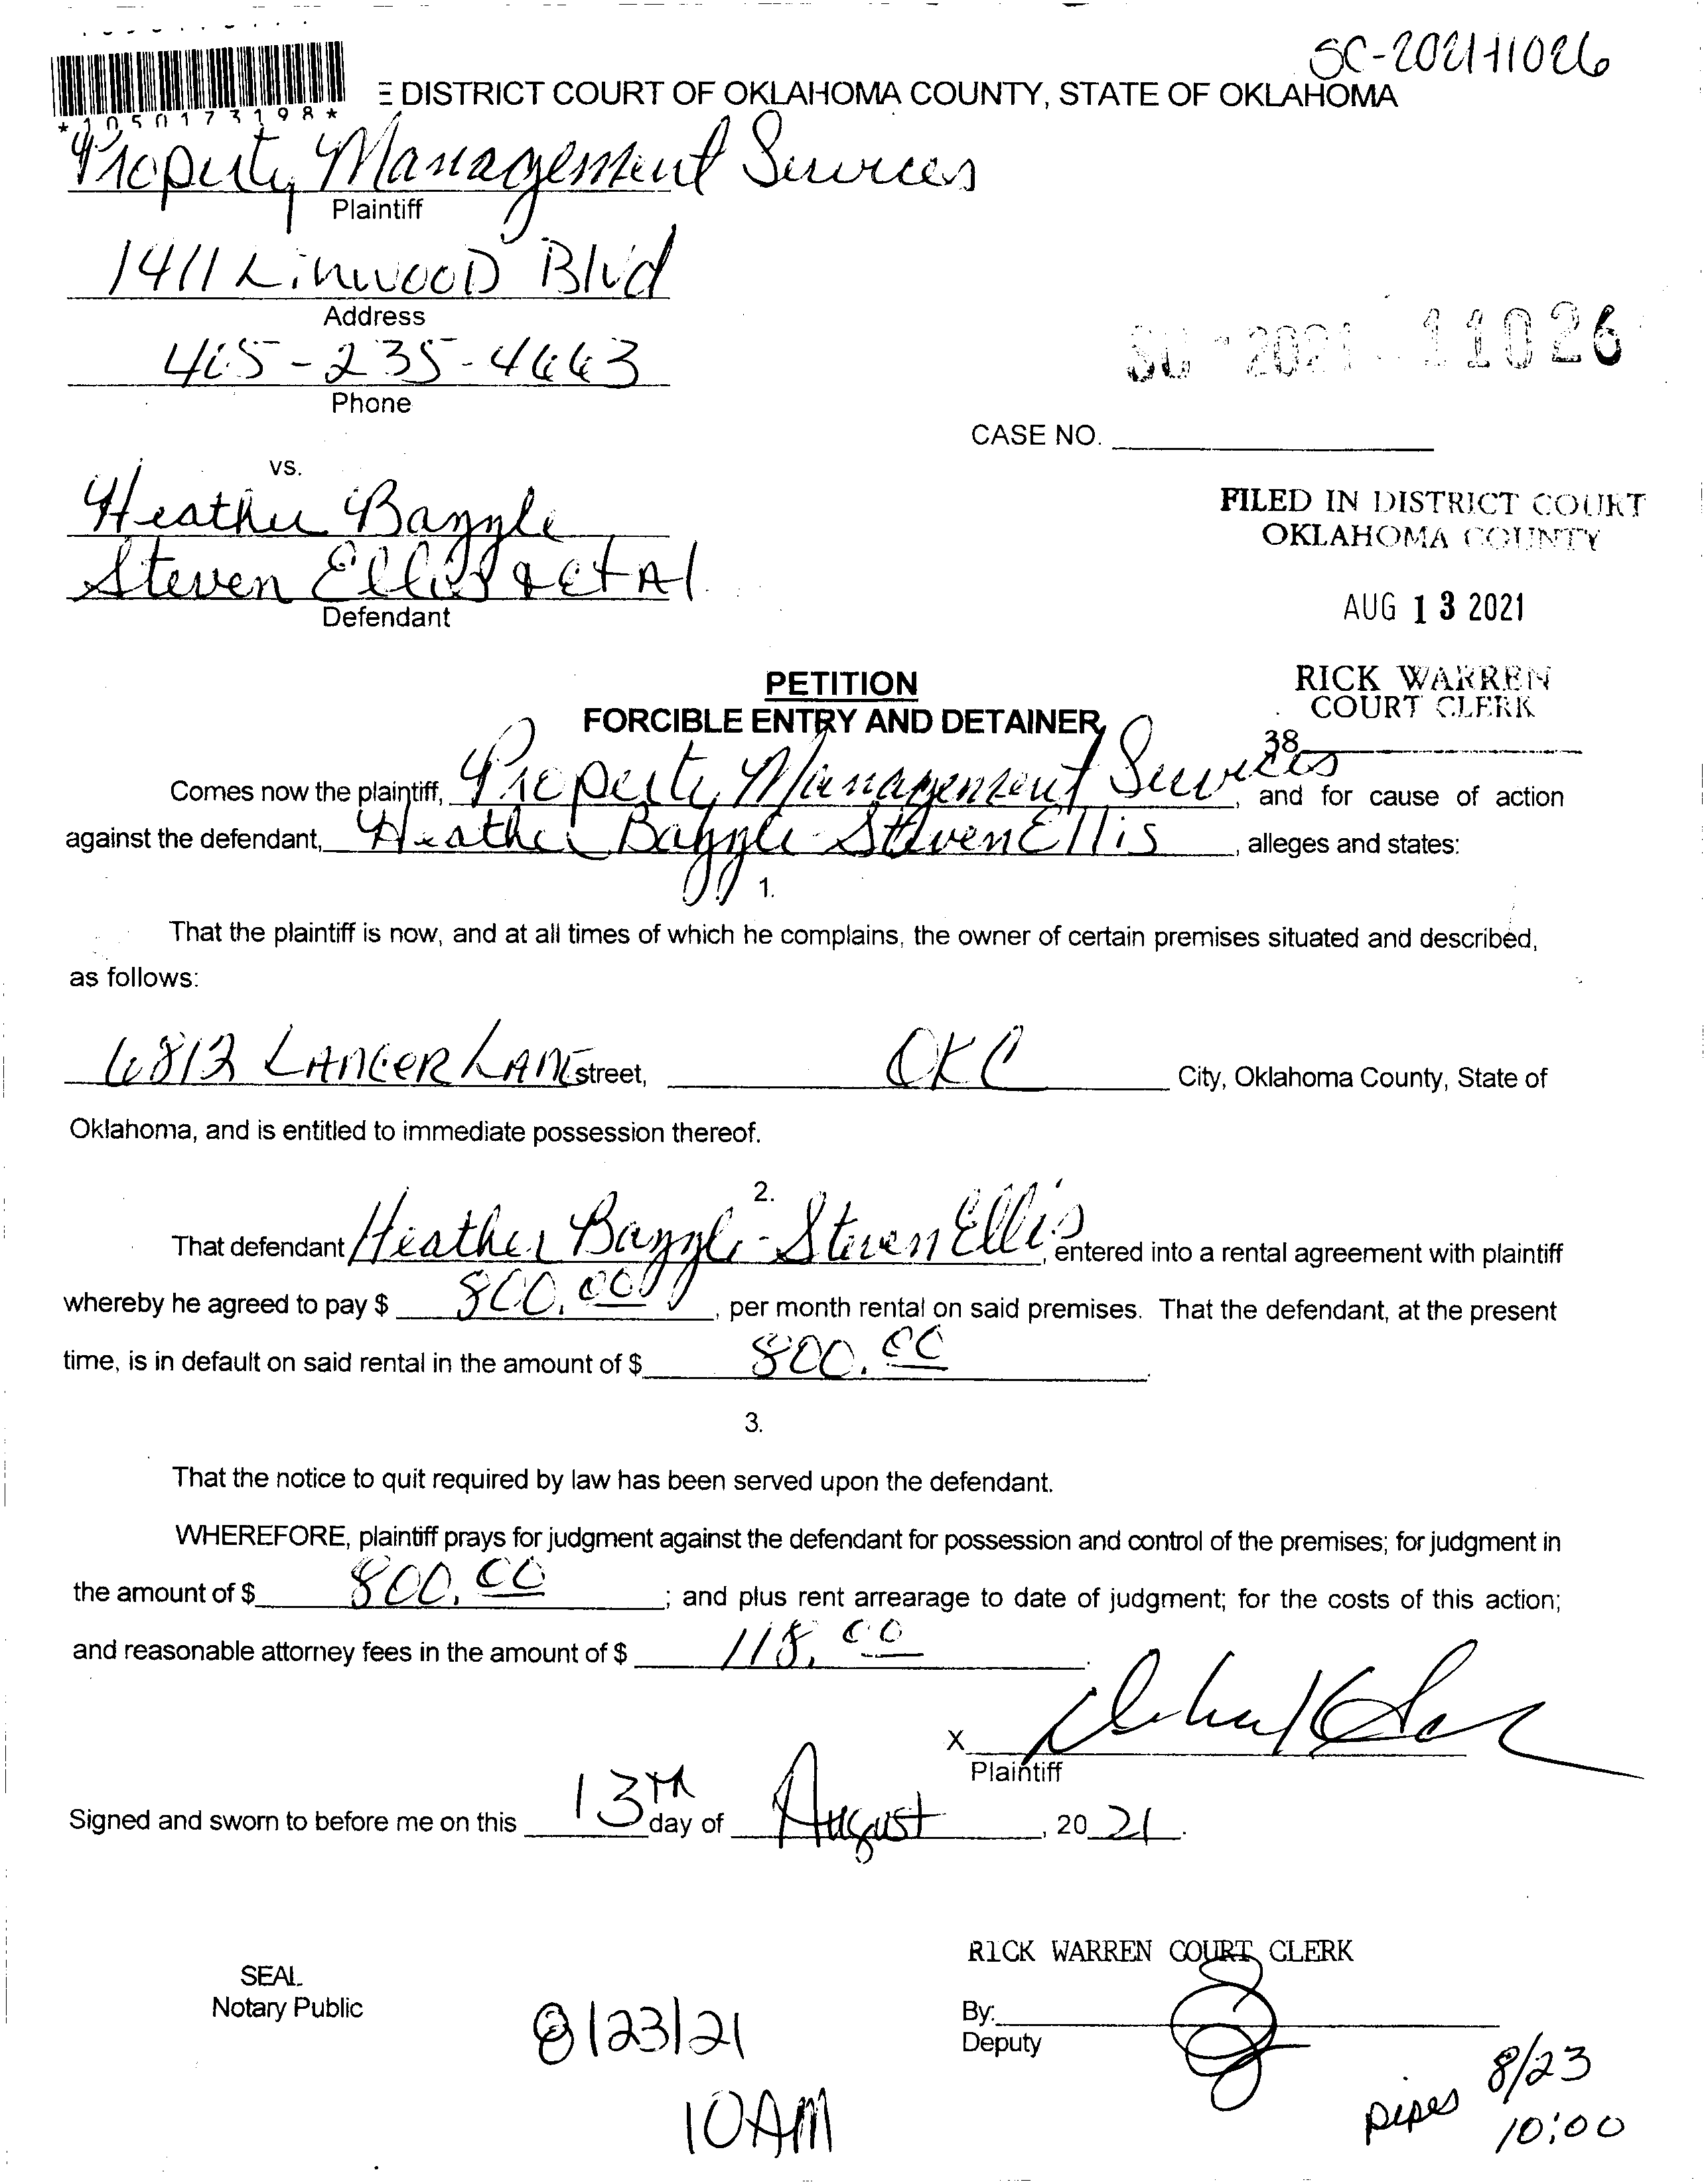 SC-2021-11026
E DISTRICT COURT OF OKLAHOMA COUNTY, STATE OF OKLAHOMA
*1050173198*
Property Management Services
Plaintiff
1411 Linwood Blvd
Address
405-235-4663
Phone
SC - 2021 - 11026
CASE NO.
vs.
Heather
Steven Ellis & et Al
Defendant
FILED IN DISTRICT COURT
OKLAHOMA COUNTY
AUG 13 2021
RICK WARREN
COURT CLERK
38
PETITION
FORCIBLE ENTRY AND DETAINER
Comes now the plaintiff, Property Management Services, and for cause of action
against the defendant, Heather - Steven Ellis, alleges and states:
1.
That the plaintiff is now, and at all times of which he complains, the owner of certain premises situated and described,
as follows:
6812 LANCER LANE street, OKC City, Oklahoma County, State of
Oklahoma, and is entitled to immediate possession thereof.
2.
That defendant Heather - Steven Ellis, entered into a rental agreement with plaintiff
whereby he agreed to pay $ 800.00, per month rental on said premises. That the defendant, at the present
time, is in default on said rental in the amount of $ 800.00.
3.
That the notice to quit required by law has been served upon the defendant.
WHEREFORE, plaintiff prays for judgment against the defendant for possession and control of the premises; for judgment in
the amount of $ 800.00; and plus rent arrearage to date of judgment; for the costs of this action;
and reasonable attorney fees in the amount of $ 118.00.
X
Plaintiff
Signed and sworn to before me on this 13th day of August, 20 21.
RICK WARREN COURT CLERK
SEAL
Notary Public
By:
Deputy
8/23/21
10AM
pipes 8/23
10:00